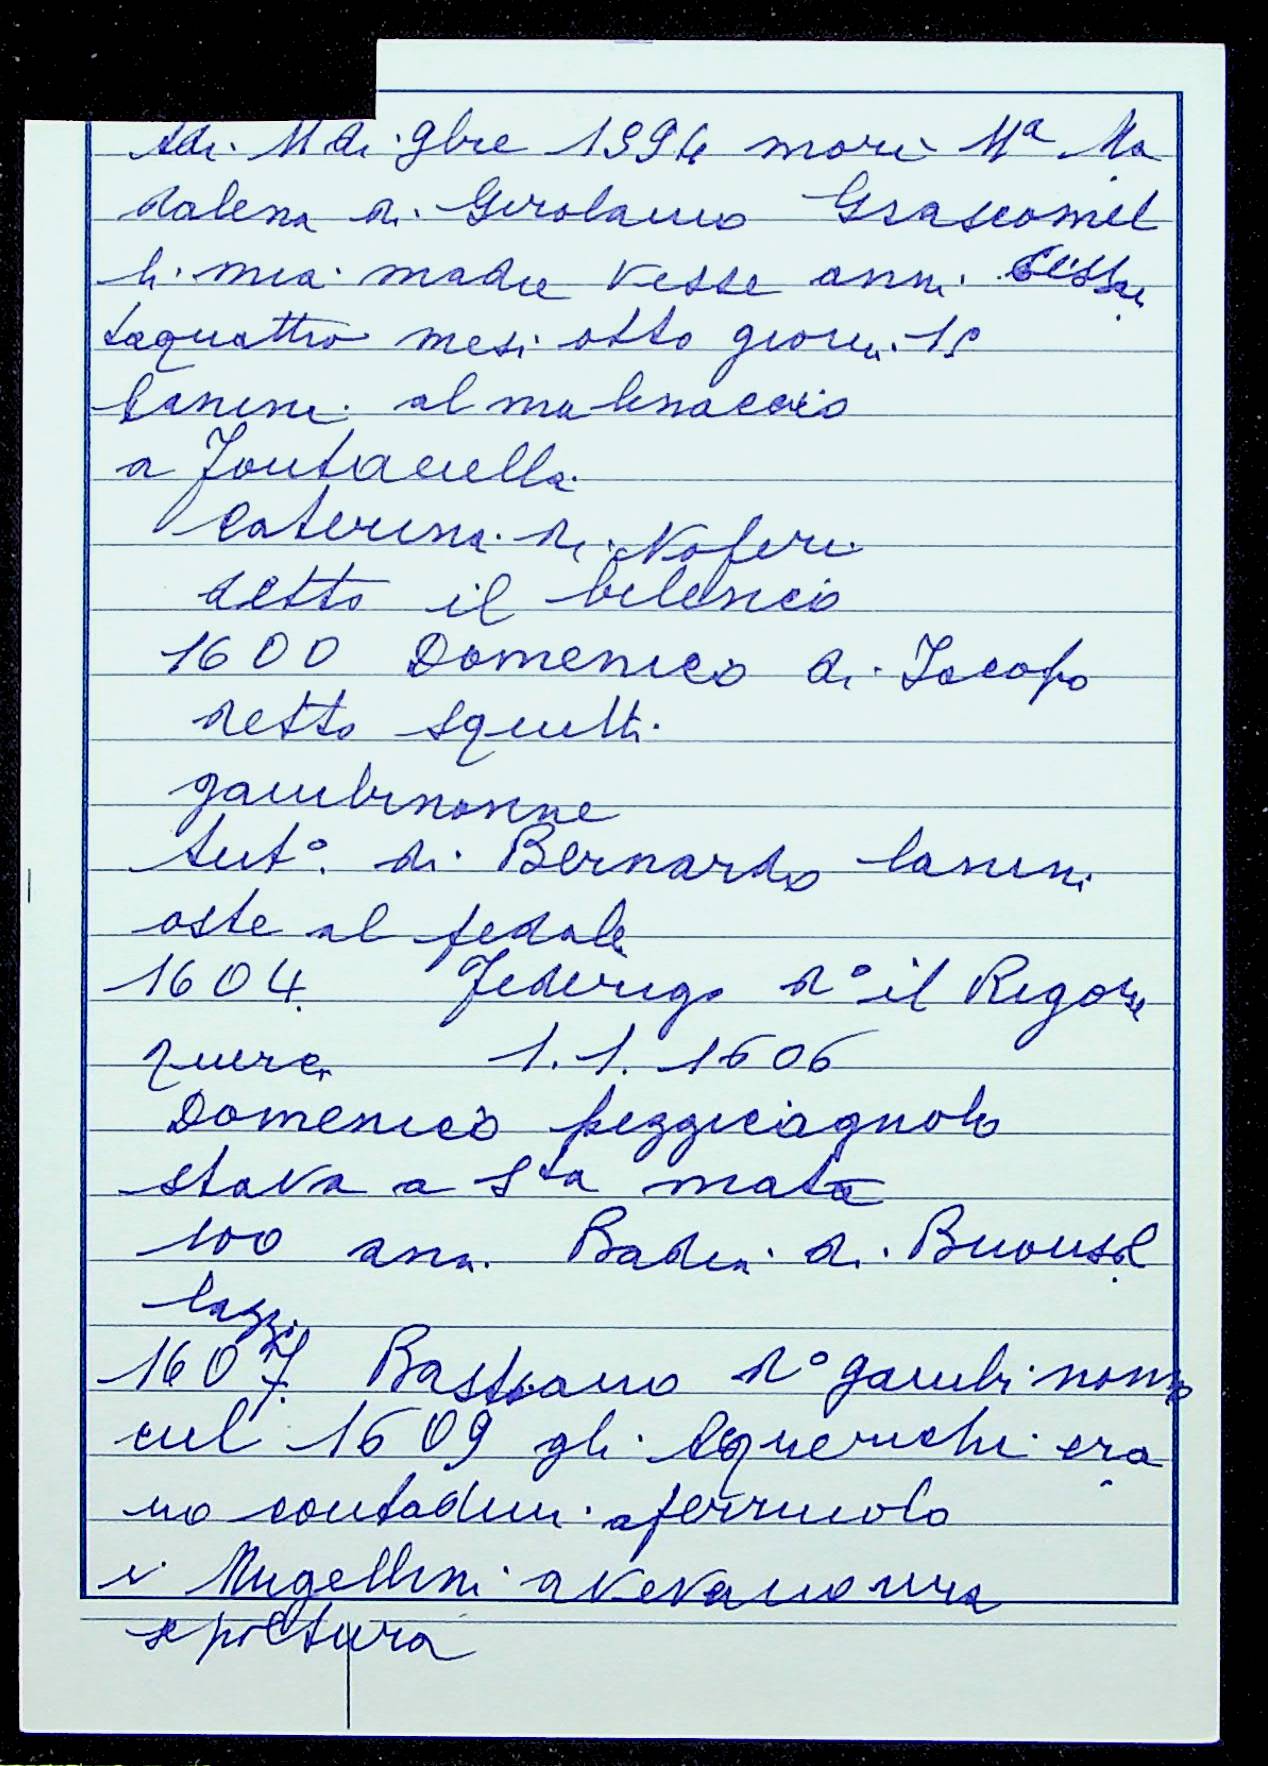 Adi. 11 di. 9bre 1594 mori Mª Ma
dalena di. Girolamo Grascomel
li. mia madre vesse anni. sessan
taquattro mesi otto giorni. 15
Canini. al mulinaccio
a Fontanella.
Caterina. di. Noferi
detto il bilencio
1600 Domenico di. Jacopo
detto squitti.
gambinonne
Ant°. di. Bernardo Canini
oste al fedale
1604. Federigo d° il Rigo
1.1. 1606
Domenico pezzicagnolo
stava a Sta mata
100 ann. Badia. di. Buonsol
lazzi
1607. Bastiano d° gambi nonne
nel 1609 gli. Squerichi era
no contadini. a ferruolo
i. Mugellini avevano una
sepoltura